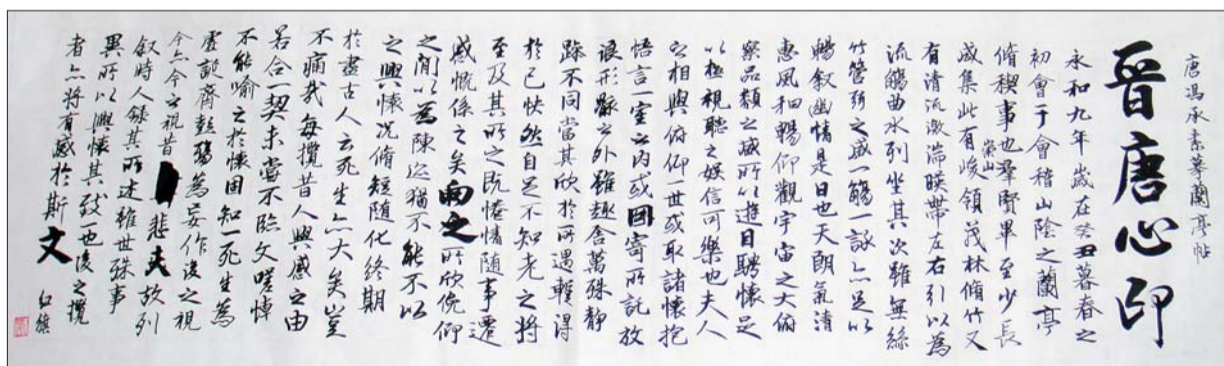 唐馮承素摹蘭亭帖
晉唐心印
永和九年歲在癸丑暮春之
初會于會稽山陰之蘭亭
脩稧事也羣賢畢至少長
咸集此有崇山峻領茂林脩竹又
有清流激湍暎帶左右引以為
流觴曲水列坐其次雖無絲
竹管弦之盛一觴一詠亦足以
暢敘幽情是日也天朗氣清
惠風和暢仰觀宇宙之大俯
察品類之盛所以遊目騁懷足
以極視聽之娛信可樂也夫人
之相與俯仰一世或取諸懷抱
悟言一室之內或因寄所託放
浪形骸之外雖趣舍萬殊靜
躁不同當其欣於所遇暫得
於己快然自足不知老之將
至及其所之既惓情隨事遷
感慨係之矣向之所欣俛仰
之閒以為陳迹猶不能不以
之興懷況脩短隨化終期
於盡古人云死生亦大矣豈
不痛哉每攬昔人興感之由
若合一契未嘗不臨文嗟悼
不能喻之於懷固知一死生為
虛誕齊彭殤為妄作後之視
今亦今之視昔悲夫故列
敘時人錄其所述雖世殊事
異所以興懷其致一也後之攬
者亦將有感於斯文
红旗